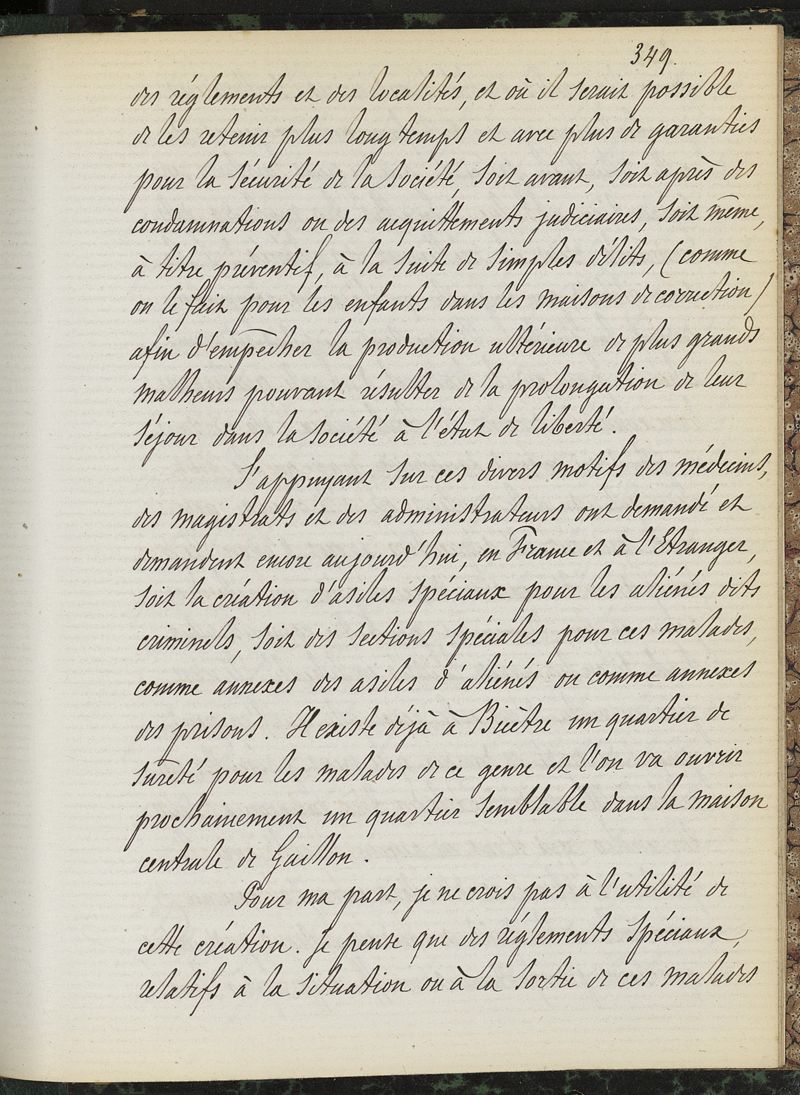 349.
des réglements et des localités, et où il serait possible
de les retenir plus longtemps et avec plus de garanties
pour la sécurité de la société, soit avant, soit après des
condamnations ou des acquittements judiciaires, soit même,
à titre préventif, à la suite de simples délits, (comme
on le fait pour les enfants dans les maisons de correction)
afin d'empêcher la production ultérieure de plus grands
malheurs pouvant résulter de la prolongation de leur
séjour dans la société à l'état de liberté.
S'appuyant sur ces divers motifs des médecins,
des magistrats et des administrateurs ont demandé et
demandent encore aujourd'hui, en France et à l'Etranger,
soit la création d'asiles spéciaux pour les aliénés dits
criminels, soit des sections spéciales pour ces malades,
comme annexes des asiles d'aliénés ou comme annexes
des prisons. Il existe déjà à Bicêtre un quartier de
sûreté pour les malades de ce genre et l'on va ouvrir
prochainement un quartier semblable dans la maison
centrale de Gaillon.
Pour ma part, je ne crois pas à l'utilité de
cette création. Je pense que des réglements spéciaux,
relatifs à la situation ou à la sortie de ces malades